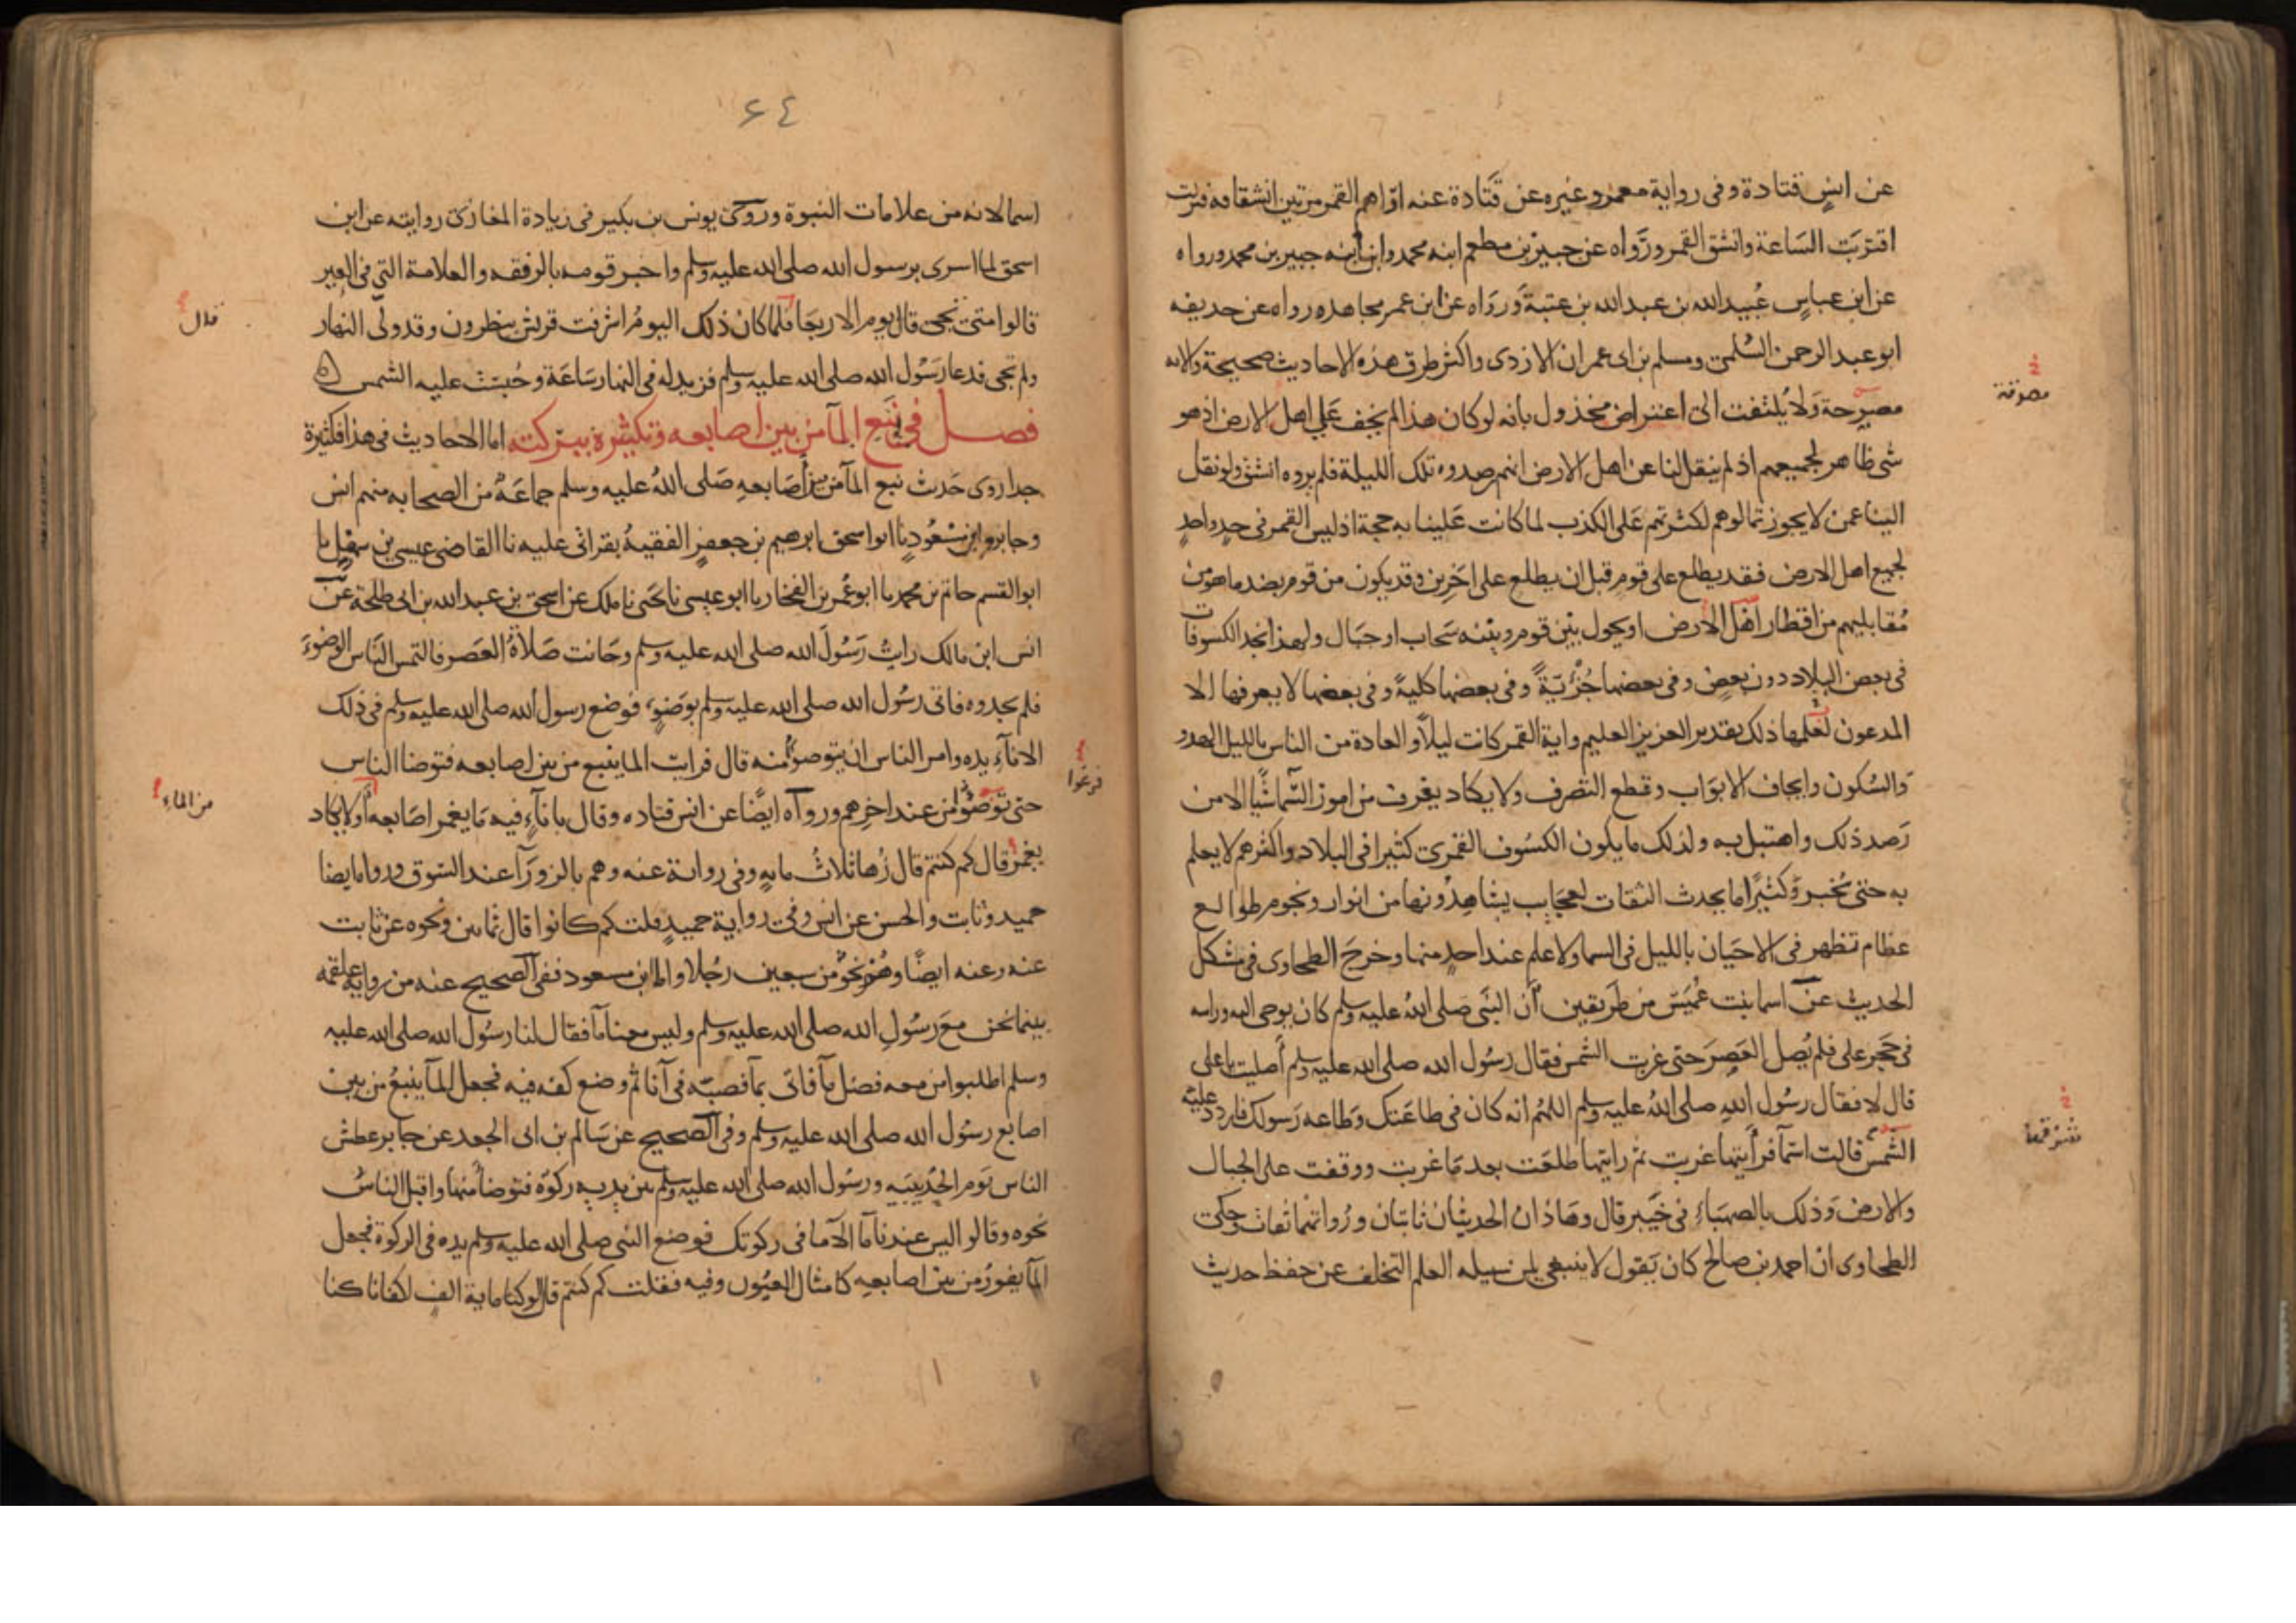 عن انسٍ قتادة وفى رواية معمر وغيره عن قتادة عنه اراهم القمر مرتين انشقاقه فنزلت
اقتربت الساعة وانشق القمر ورواه عن جبير بن مطعم ابنه محمد وابن ابنه جبير بن محمد ورواه
عن ابن عباسٍ عُبيد الله بن عبد الله بن عتبة ورواه عن ابن عمر مجاهد ورواه عن حذيفه
ابو عبد الرحمن السُلمى ومسلم بن ابى عمران الازدى واكثر طرق هذه الاحاديث صحيحة والايه
مصرحة ولا يُلتفت الى اعتراض مخذول بانه لو كان هذا لم يخف على اهل الارض اذ هو
شى ظاهر لجميعهم اذ لم ينقل لنا عن اهل الارض انهم رصدوه تلك الليلة فلم يروه انشق ولو نقل
الينا عمن لا يجوز تمالوهم لكثرتهم على الكذب لما كانت علينا به حجة اذ ليس القمر فى حدٍ واحدٍ
لجميع اهل الارض فقد يطلع على قوم قبل ان يطلع على اخرين وقد يكون من قوم بضد ما هو من
مُقابليهم من اقطار اهل الارض او يحول بين قوم وبينه سحاب او جبال ولهذا نجد الكسوفات
فى بعض البلاد دون بعضٍ وفى بعضها جُزْئيّةً وفى بعضها كليةً وفى بعضها لا يعرفها الا
المدعون لعلمها ذلك تقدير العزيز العليم واية القمر كانت ليلاً والعادة من الناس بالليل الهدو
والسُكون وايجاف الابواب وقطع التصرف ولا يكاد يعرف من امور السّما شيًا الا من
رَصد ذلك واهتبل به ولذلك ما يكون الكسُوف القمرى كثيرا فى البلاد واكثرهم لا يعلم
به حتى يُخبر وكثيرًا ما يحدث الثقات بعجايب يشاهِدُونها من انوار ونجوم طوالع
عظام تظهر فى الاحيان بالليل فى السما ولا علم عند احدٍ منها وخرج الطحاوى فى مشكل
الحديث عن اسما بنت عُمَيْس من طريقين أن النبى صلى اللهُ عليه وسلم كان يوحى اليه وراسه
فى حجر على فلم يُصل العَصر حتى غربت الشمس فقال رسُول الله صلى الله عليه وسلم أصليت يا على
قال لا فقال رسُول اللهِ صلى اللهُ عليه وسلم اللهُم انه كان فى طاعتك وطاعه رَسولك فاردد عليه
الشمس قالت اسمآ فرأيتها غربت ثم رايتها طلعت بعد مَا غربت ووقفت على الجبال
والارض وَذلك بالصهبَاءِ فى خَيبر قال وهَاذان الحديثان ثابتان ورُواتهما ثقات وحكى
الطحاوى ان احمد بن صالح كان يَقول لا ينبغى لمن سبيله العلم التخلف عن حفظ حديث
مصرفة
٦٤
اسما لانه من علامات النبوة وروى يونس بن بكير فى زيادة المغازى روايته عن ابن
اسحق لما اسرى برسول الله صلى الله عليه وسلم واخبر قومه بالرفقه والعلامة التى فى العير
قالوا متى تجى قال يوم الاربعا فلما كان ذلك اليومُ اشرفت قريش ينظرون وقد ولّى النهار
ولم تجى فدعا رَسُول الله صلى الله عليه وسلم فزيد له فى النهار سَاعَة وحُبسَت عليه الشمس
فصل فى نَبع المآ من بين اصابعه وتكثيره ببركته اما الاحاديث فى هذا فكثيرة
جدا روى حَديث نبع المآ من بين أصَابعهِ صَلى اللهُ عليه وسلم جماعَةٌ من الصحابه منهم انس
وجابر وابن مسْعُودٍ نا ابو اسحق ابرهيم بن جعفرٍ الفقيهُ بقراتى عليه نا القاضى عيسى بن سهلٍ نا
ابو القسم حاتم بن محمد نا ابو عُمر بن الفخار نا ابو عيسى نا يحيى نا ملك عن اسحق بن عبد الله بن ابى طلحة عن
انس ابن مالك رايتُ رَسُولَ الله صلى الله عليه وسلم وحَانت صَلاةُ العَصر فالتمس النَّاس الوضوءَ
فلم يجدوه فاتى رسُول الله صلى الله عليه وسلم بوَضوءٍ فوضع رسول الله صلى الله عليه وسلم فى ذلك
الانآءِ يده وامر الناس ان يتوضوأ منه قال فرايت الما ينبع من بين اصابعه فتوضا الناس
حتى توضئوا من عند اخرهم ورواه ايضًا عن انس قتاده وقال بانآءٍ فيه مَا يغمر اصَابعه او لا يكاد
يغمر قال كم كنتم قال زُها ثلاثُ مايهٍ وفى رواية عنه وهم بالزورآ عند السّوق ورواه ايضا
حميد وثابت والحسن عن انس وفى رواية حميدٍ قلت كم كانوا قال ثمانين ونحوه عن ثابت
عنه وعنه ايضًا وهُمْ نحوٌ من سبعين رجُلا واما ابن مسعود ففى الصحيح عنه من رواية علقمه
بينما نحن مع رَسُولِ الله صلى الله عليه وسلم وليس معنا مآ فقال لنا رسُول الله صلى الله عليه
وسلم اطلبوا من معه فضل مآ فاتى بمآ فصبّه فى آنا ثم وضع كفه فيه فجعل المآ ينبعُ من بين
اصابع رسُول الله صلى الله عليه وسلم وفى الصحيح عن سَالم بن ابى الجعد عن جابر عطش
الناس يَوم الحُدَيبَيه ورسُول الله صلى الله عليه وسلم بين يديه ركوَة فتوضأ منها واقبل الناسُ
نحوه وقالوا ليس عندنا مآ الا ما فى ركوتك فوضع النبى صلى الله عليه وسلم يده فى الركوة فجعل
المآ يفورُ من بين اصابعهِ كامثال العيُون وفيه فقلت كم كنتم قال لو كنا ماية الفٍ لكفانا كنا
قال
من الماء